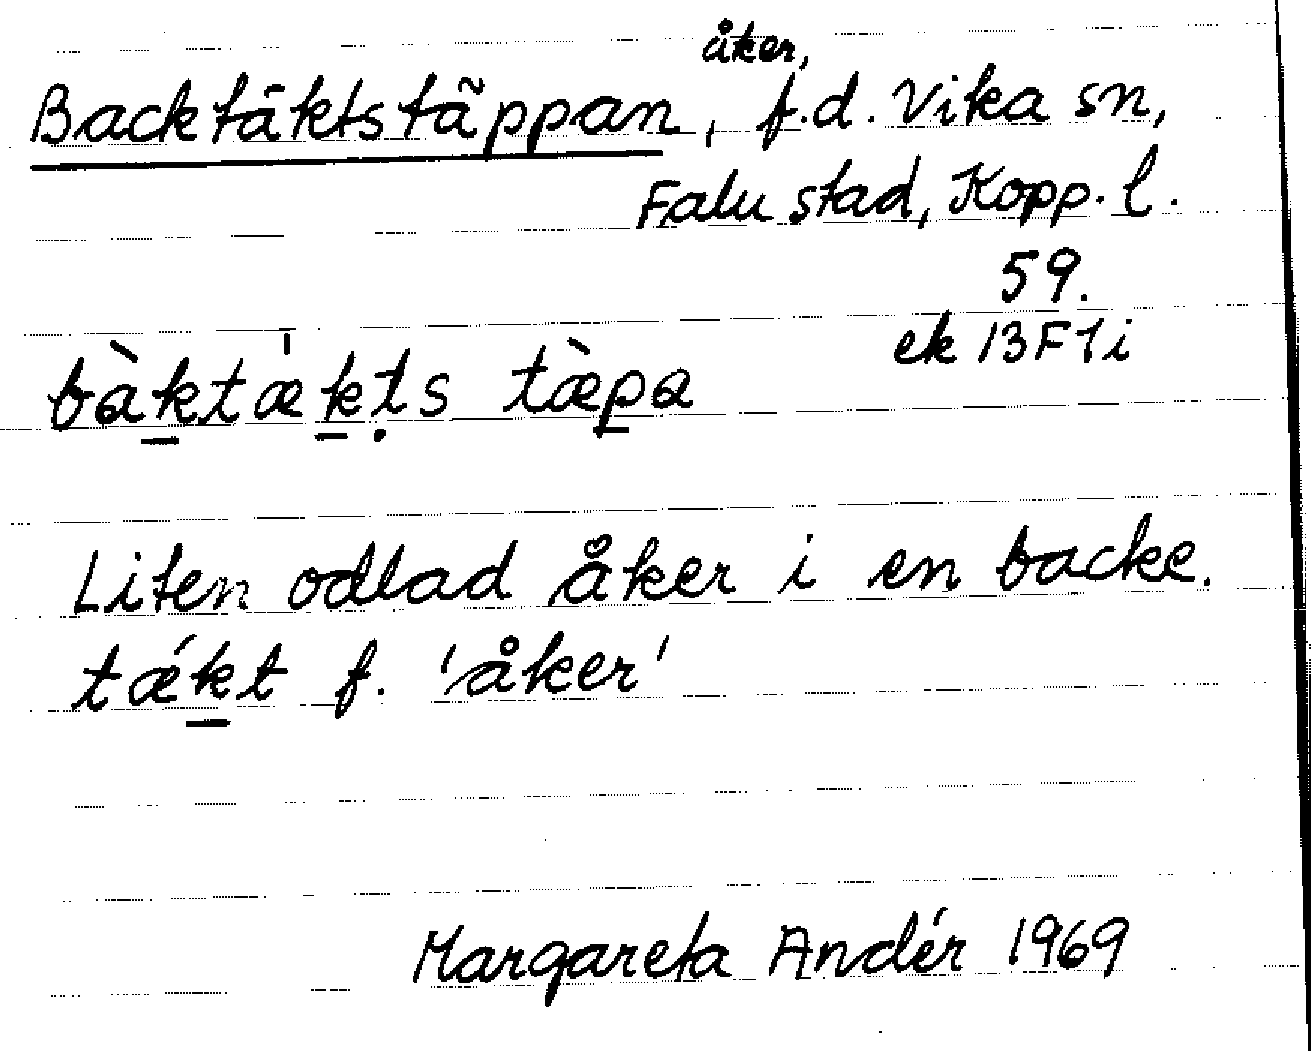 åker,
Backtäktstäppan, f.d. Vika sn,
Falu stad, Kopp. l.
59.
ek 13F1i
bàk̲tæ̍k̲ṭs tæ̀p̲a
Liten odlad åker i en backe.
tǽk̲t f. 'åker'
Margareta Andér 1969